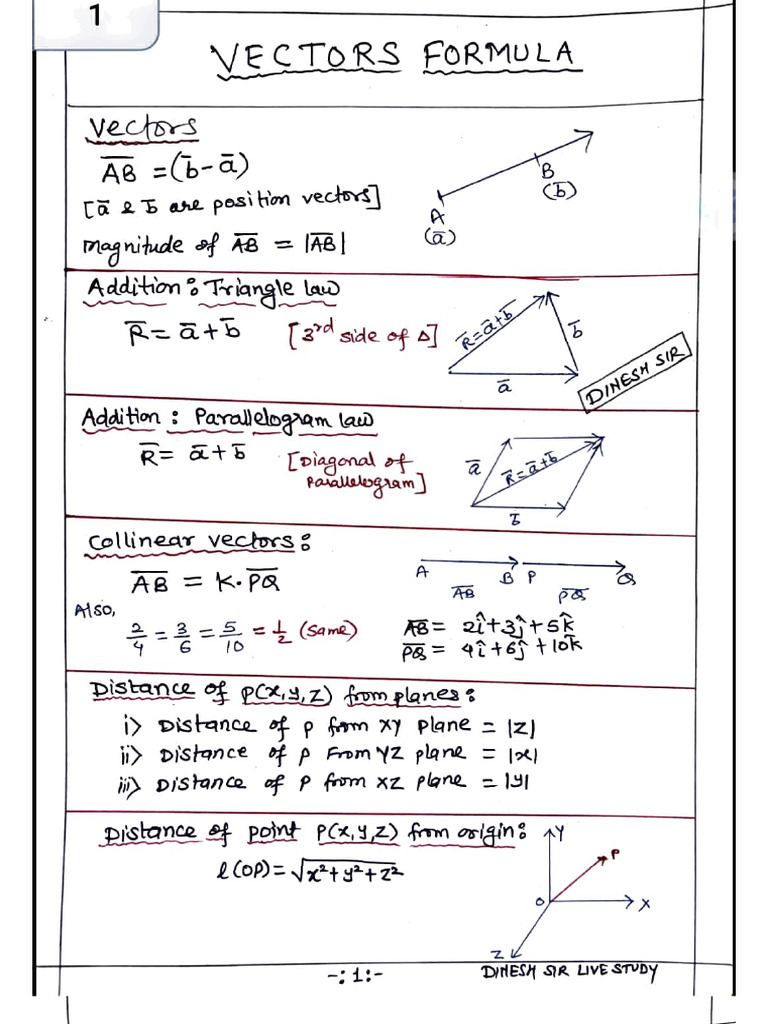 1
VECTORS FORMULA
Vectors
A̅B̅ = (b̅ - a̅)
[a̅ & b̅ are position vectors]
magnitude of A̅B̅ = |A̅B̅|
A
(a̅)
B
(b̅)
Addition: Triangle law
R̅ = a̅ + b̅ [3rd side of Δ]
R̅ = a̅ + b̅
b̅
a̅
DINESH SIR
Addition: Parallelogram law
R̅ = a̅ + b̅ [Diagonal of
Parallelogram]
a̅
R̅ = a̅ + b̅
b̅
Collinear vectors:
A̅B̅ = K·P̅Q̅
A B P Q
A̅B̅ P̅Q̅
Also,
2/4 = 3/6 = 5/10 = 1/2 (same)
A̅B̅ = 2î + 3ĵ + 5k̂
P̅Q̅ = 4î + 6ĵ + 10k̂
Distance of P(x,y,z) from planes:
i) Distance of P from XY plane = |z|
ii) Distance of P From YZ plane = |x|
iii) Distance of P from XZ plane = |y|
Distance of point P(x,y,z) from origin:
l(OP) = √x²+y²+z²
Y
P
O
X
Z
-: 1 :-
DINESH SIR LIVE STUDY